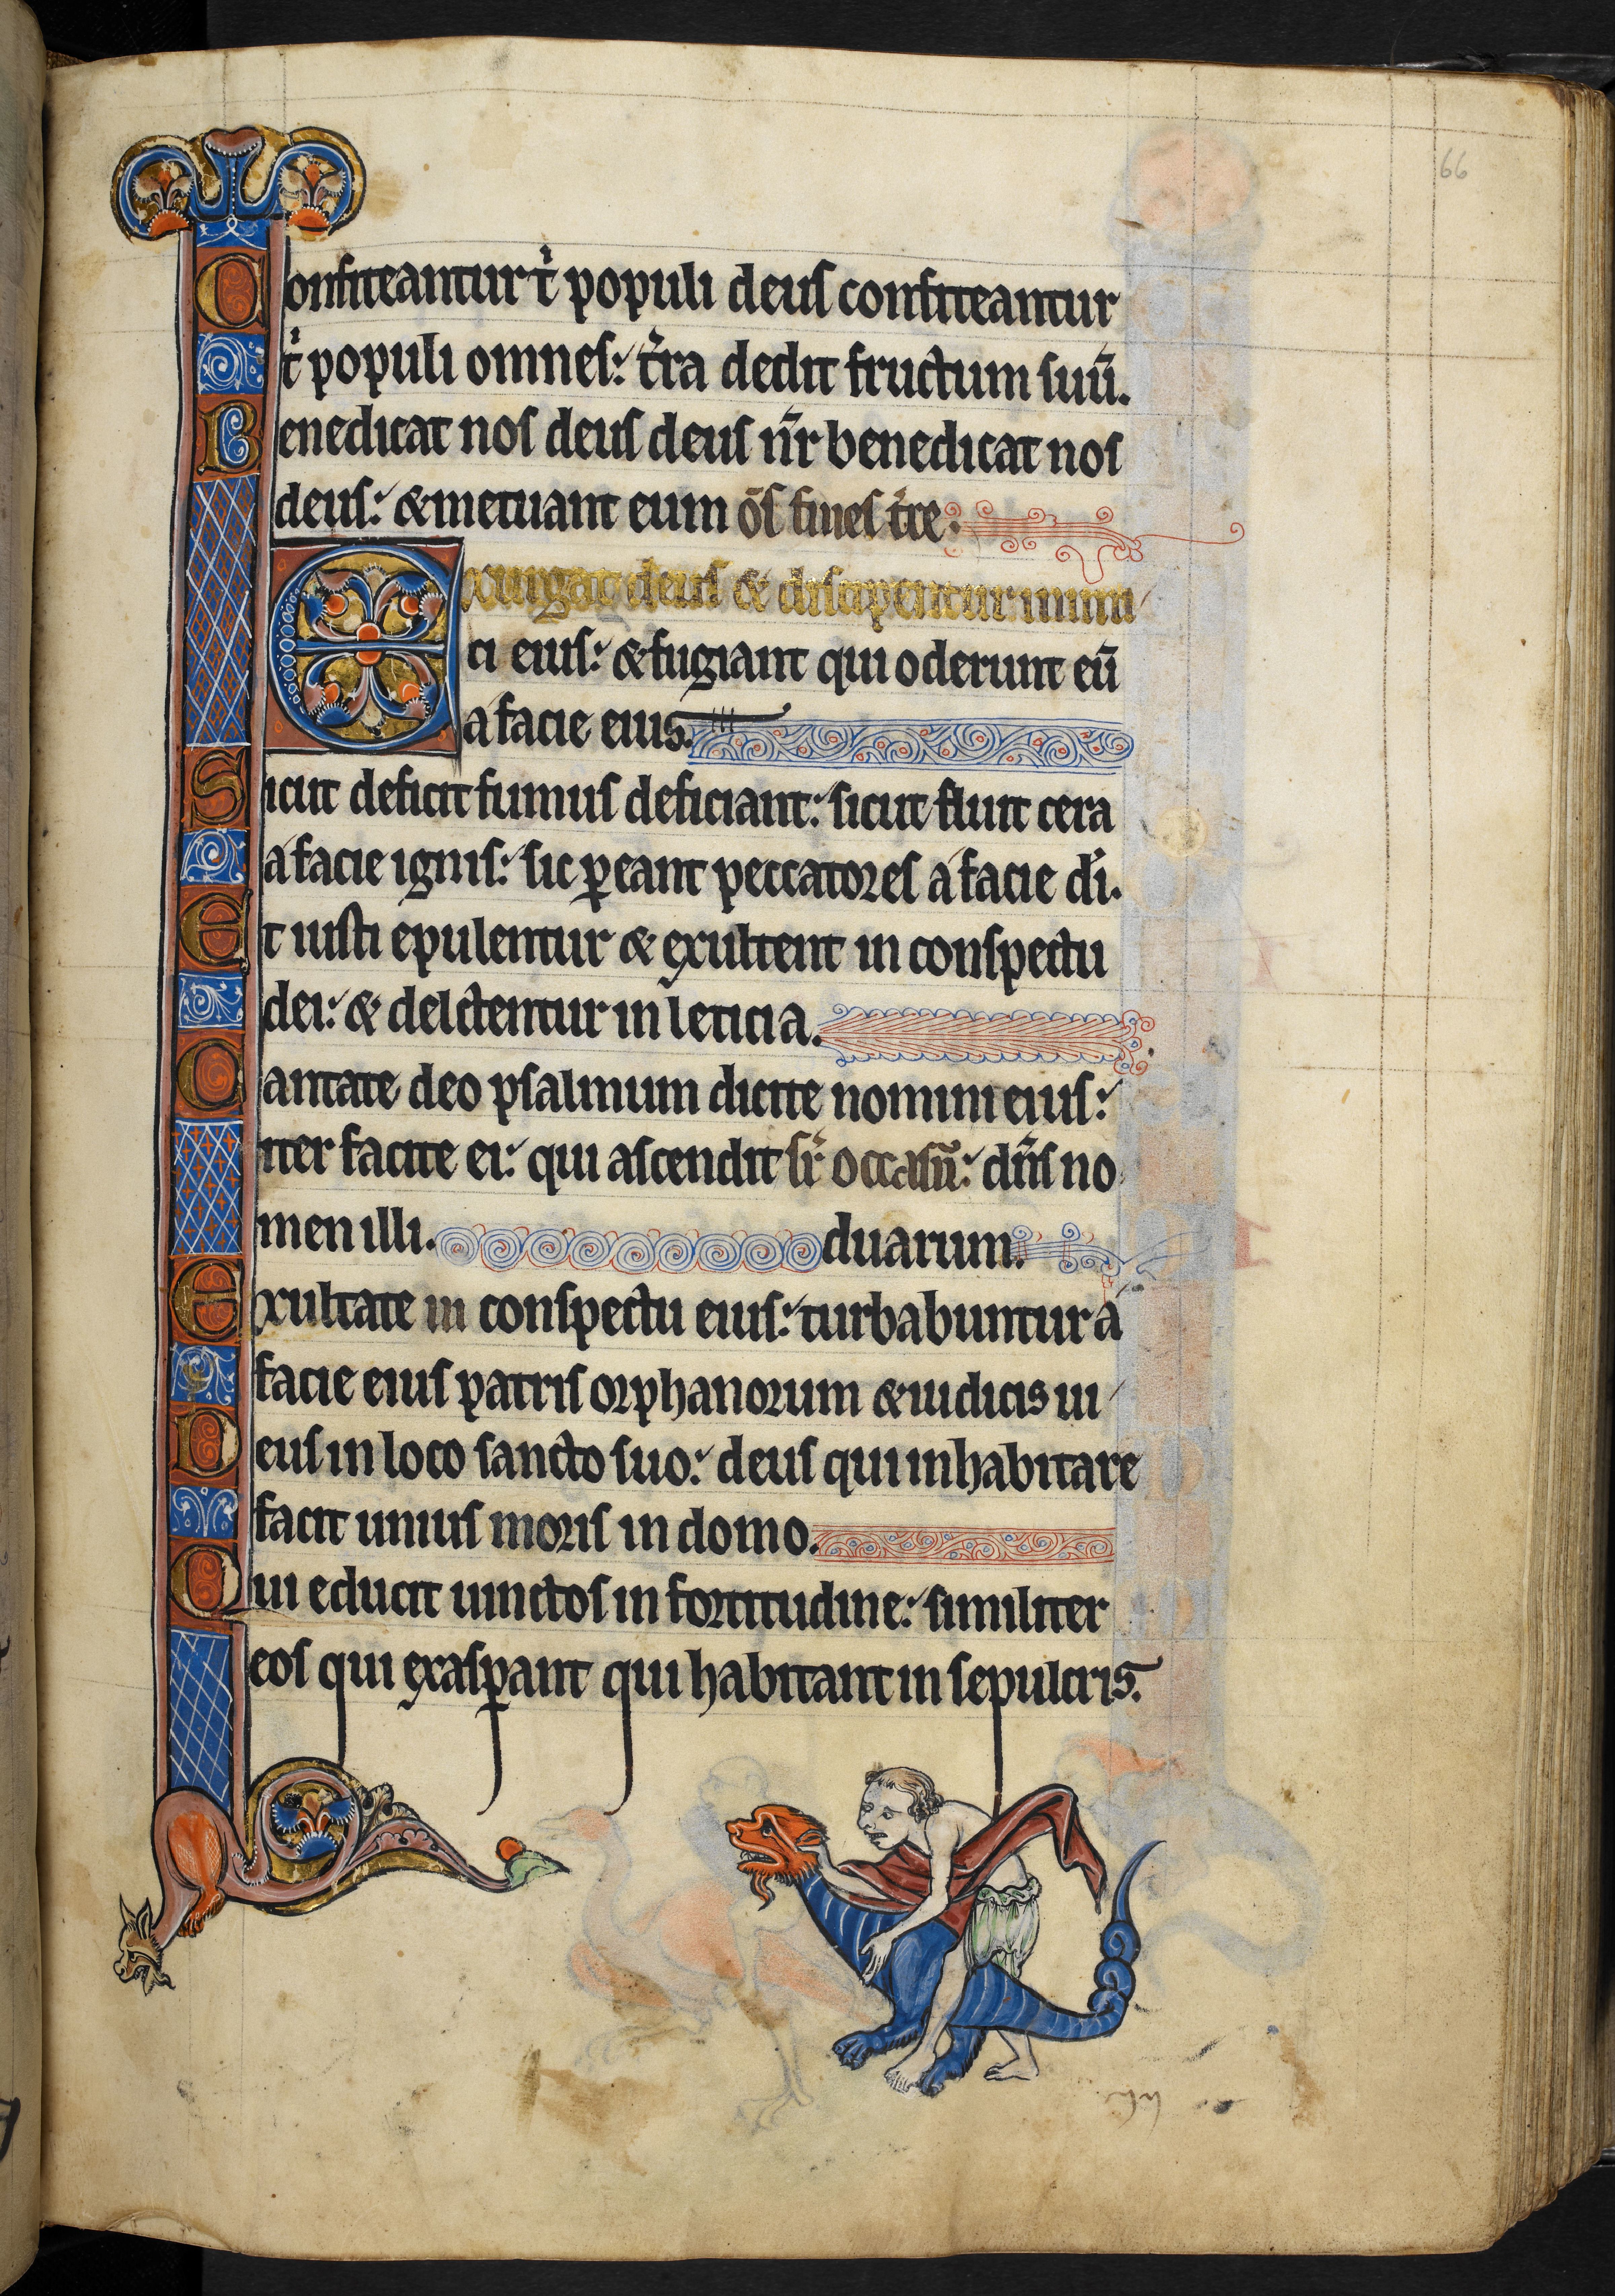 66
Confiteantur t̉ populi deus confiteantur
t̉ populi omnes: t̉ra dedit fructum suū.
Benedicat nos deus deus nr̄ benedicat nos
deus: & metuant eum om̄s fines t̉re.
Exurgat deus & dissipentur inimi
ci eius: & fugiant qui oderunt eū
a facie eius.
Sicut deficit fumus deficiant: sicut fluit cera
a facie ignis: sic ꝑeant peccatores a facie di̅.
Et iusti epulentur & exultent in conspectu
dei: & delctentur in leticia.
Cantate deo psalmum dicite nomini eius:
iter facite ei: qui ascendit sr̉ occasū: dn̄s no
men illi. duarum.
Exultate in conspectu eius: turbabuntur a
facie eius patris orphanorum & iudicis ui
Deus in loco sancto suo: deus qui inhabitare
facit unius moris in domo.
Qui educit uinctos in fortitudine: similiter
eos qui exasꝑant qui habitant in sepulcris.